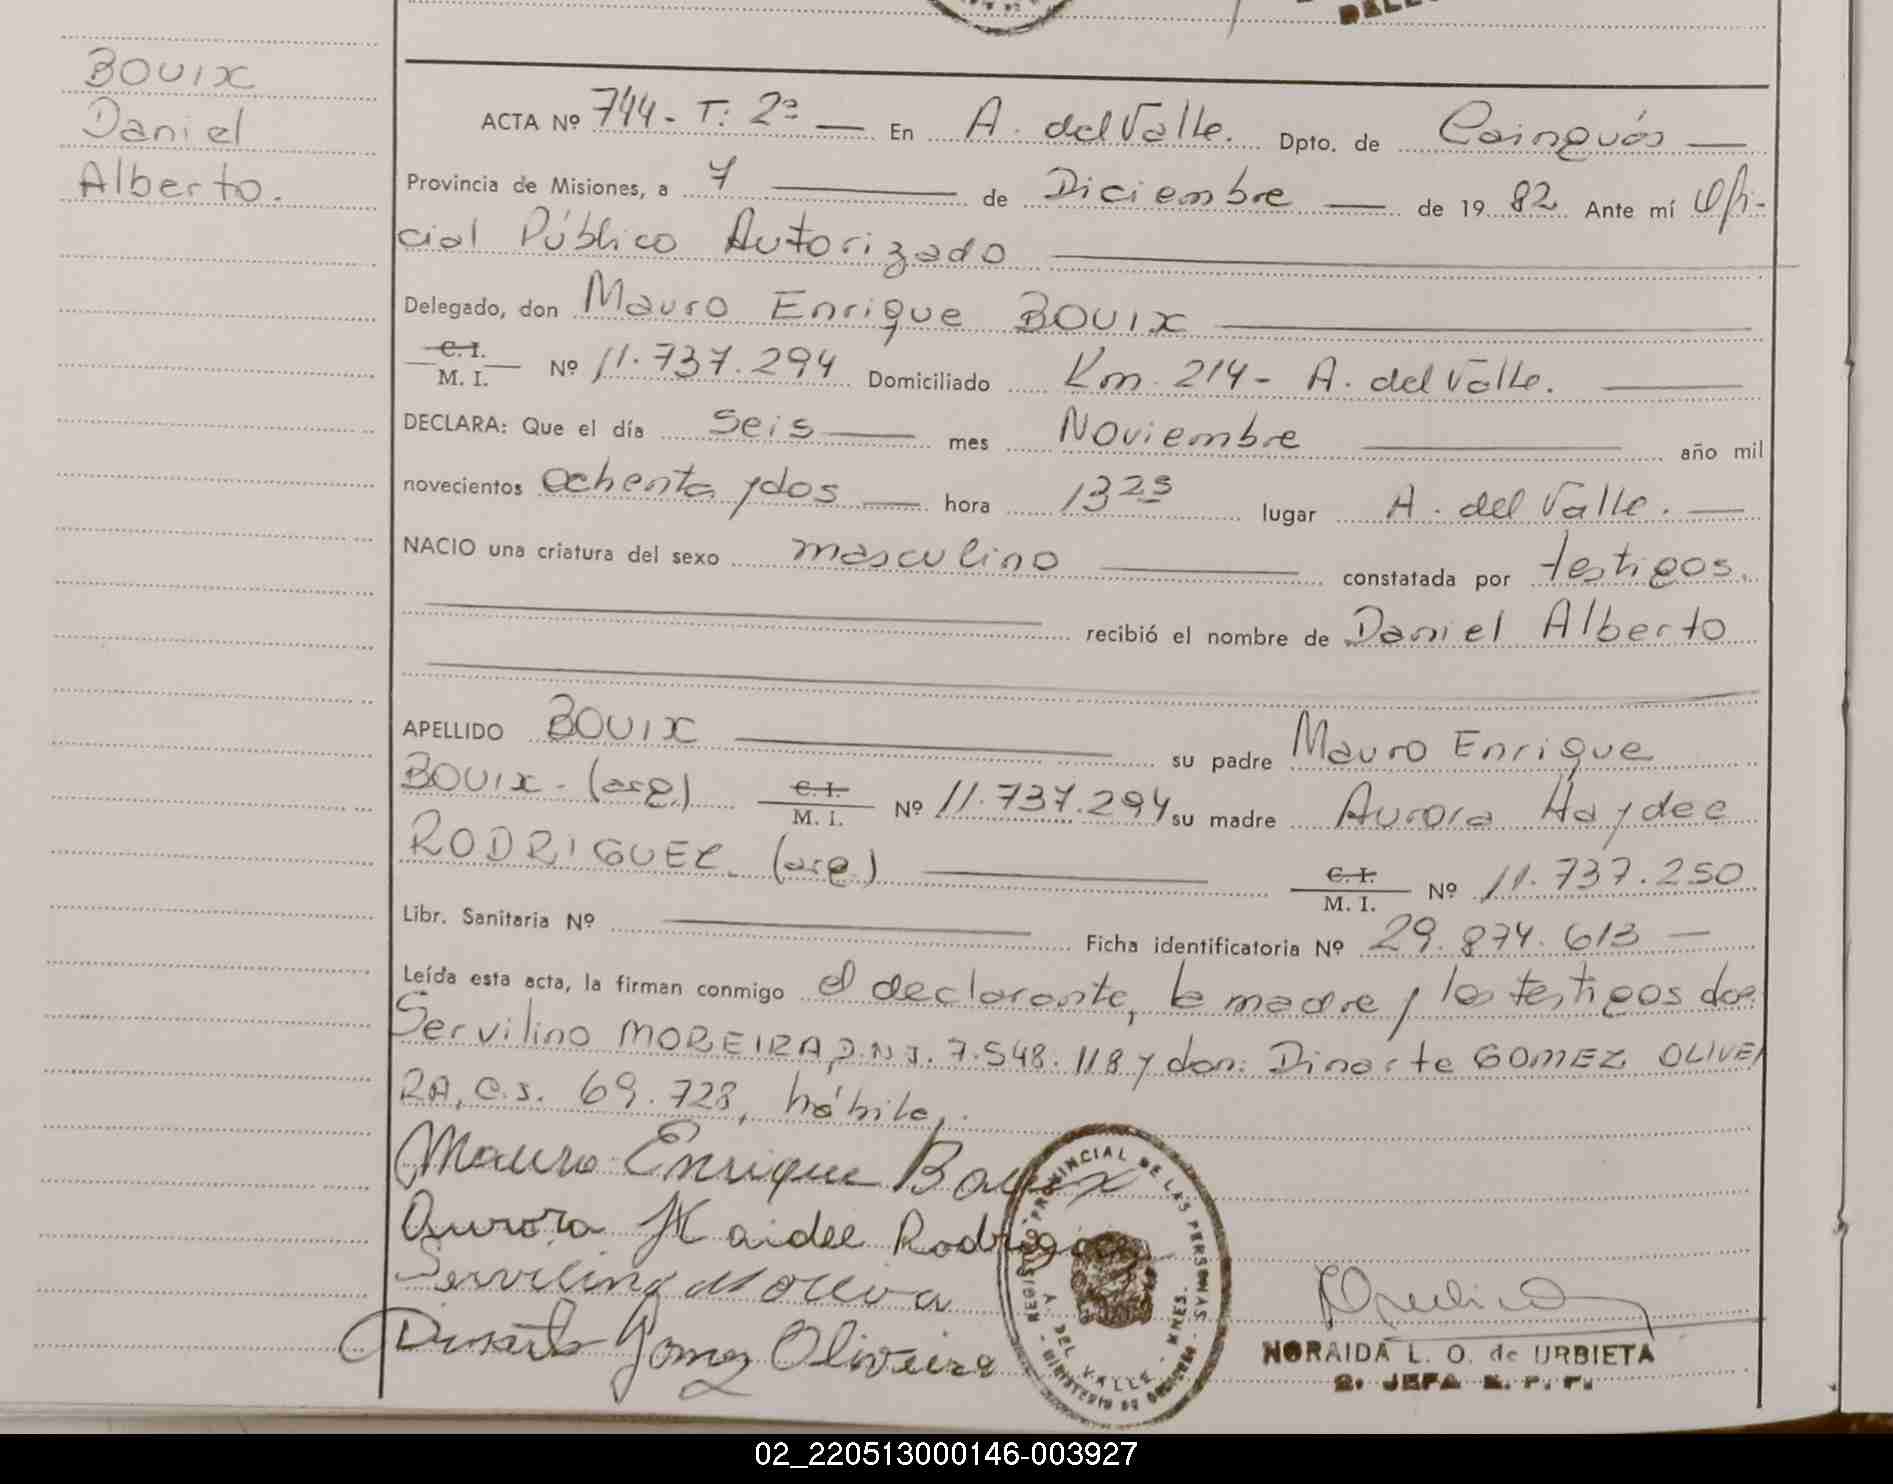 BOUIX
Daniel
Alberto.
ACTA Nº 744 - T: 2º — En A. del Valle. Dpto. de Cainguás —
Provincia de Misiones, a 7 — de Diciembre — de 19 82 Ante mí Ofi-
cial Público Autorizado
Delegado, don Mauro Enrique BOUIX
C. I.
M. I. Nº 11.737.294 Domiciliado Km. 214 - A. del Valle.
DECLARA: Que el día seis — mes Noviembre — año mil
novecientos ochenta y dos — hora 13 25 lugar A. del Valle. —
NACIO una criatura del sexo masculino — constatada por testigos.
recibió el nombre de Daniel Alberto
APELLIDO BOUIX — su padre Mauro Enrique
BOUIX - (arg) C. I. M. I. Nº 11.737.294 su madre Aurora Haydee
RODRIGUEZ. (arg) — C. I. M. I. Nº 11.737.250
Libr. Sanitaria Nº — Ficha identificatoria Nº 29.874.613 —
Leída esta acta, la firman conmigo el declarante, la madre y los testigos don:
Servilino MOREIRA, D.N.I. 7.548.118 y don: Dinarte GOMEZ OLIVEI
RA, C.I. 69.728, hábile.
Mauro Enrique Bouix
Aurora Haidee Rodrigues
Servilino Moreira
Dinarte Gomez Oliveira
REGISTRO PROVINCIAL DE LAS PERSONAS
A. DEL VALLE - MNES.
MINISTERIO DE GOBIERNO
NORAIDA L. O. de URBIETA
2. JEFA R. P. P.
02_220513000146-003927